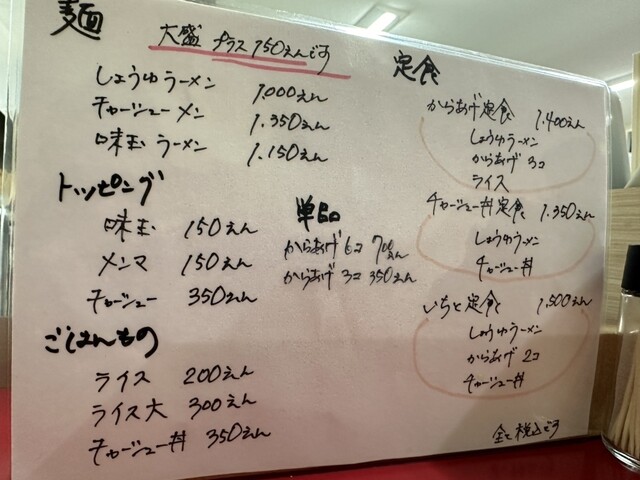 麺
大盛 プラス150えんです
しょうゆラーメン 1.000えん
チャーシューメン 1.350えん
味玉ラーメン 1.150えん
トッピング
味玉 150えん
メンマ 150えん
チャーシュー 350えん
ごはんもの
ライス 200えん
ライス大 300えん
チャーシュー丼 350えん
単品
からあげ 6コ 700えん
からあげ 3コ 350えん
定食
からあげ定食 1.400えん
しょうゆラーメン
からあげ 3コ
ライス
チャーシュー丼定食 1.350えん
しょうゆラーメン
チャーシュー丼
いちと定食 1,500えん
しょうゆラーメン
からあげ 2コ
チャーシュー丼
全て税込です